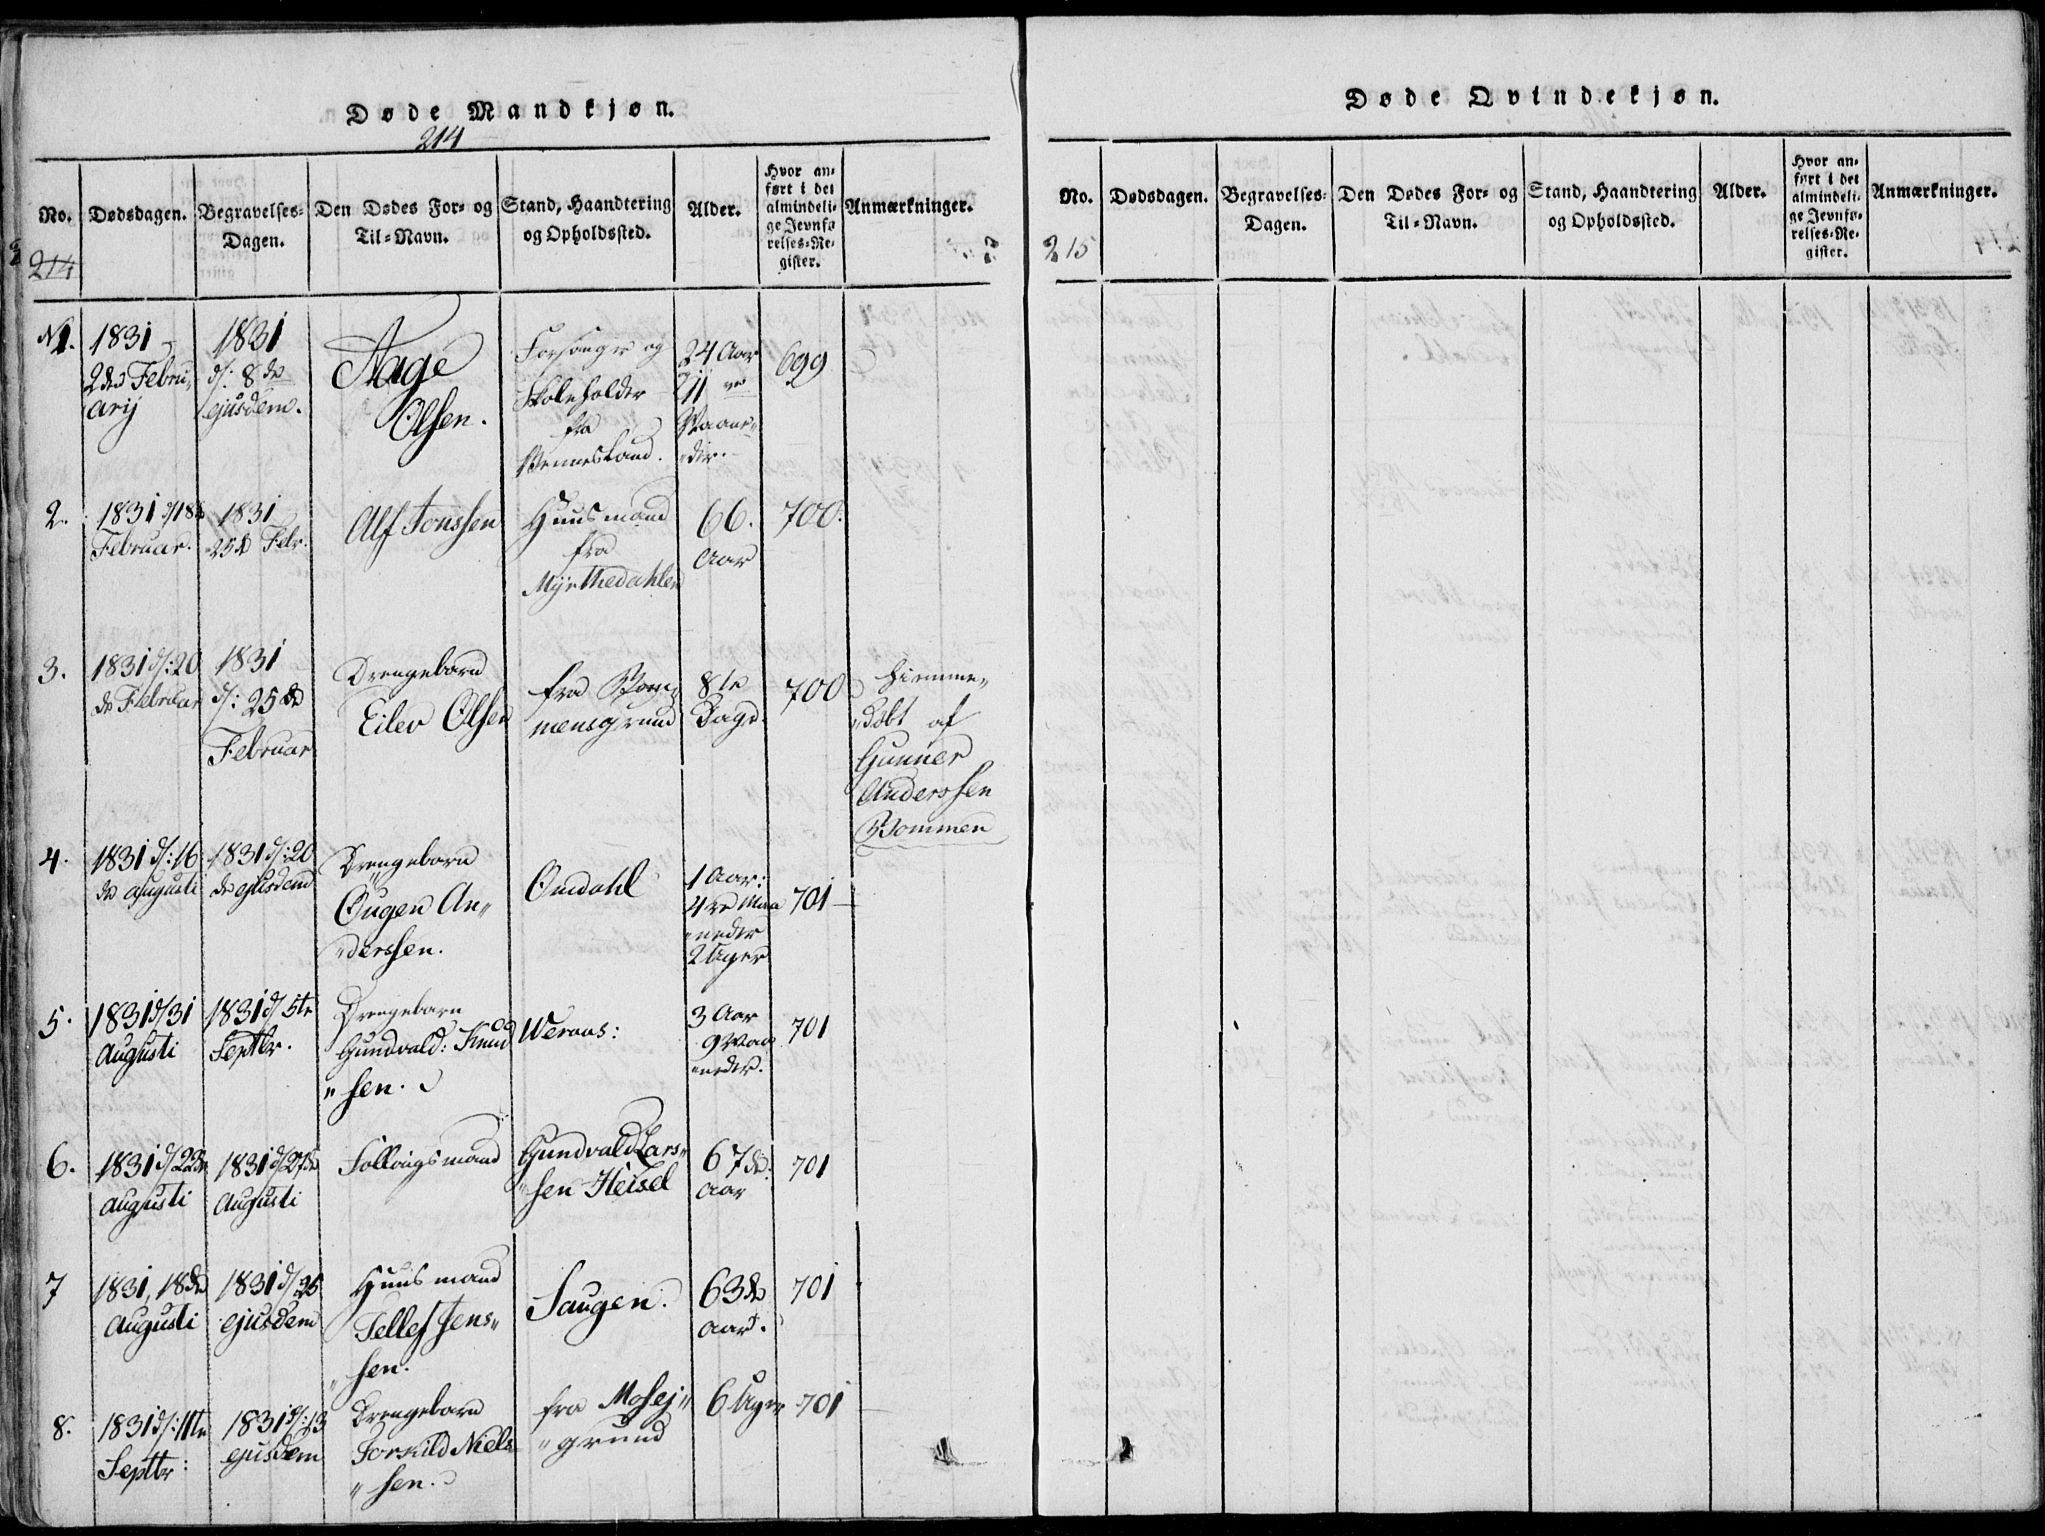 Døde Mandkjøn.
214
No.
Dødsdagen.
Begravelses-
Dagen.
Den Dødes For- og
Til-Navn.
Stand, Haandtering
og Opholdssted.
Alder.
Hvor an-
ført i det
almindeli-
ge Jevnfø
relses-Re-
gister.
Anmærkninger.
214
No 1.
1831
2den Febru-
arij
1831
d: 8de
ejusdem.
Aage
Olsen.
Forsanger og
Skoleholder
fra
Vennesland.
24 Aar
11 
Maane-
der.
699
2.
1831 d 18de
Februar.
1831
25d Febr.
Alf Jonssen
Huusmand
fra
Myrthedahlen
66.
Aar
700.
3.
1831 d: 20
de Februar
1831
d: 25de
Februar
Drengebarn
Eilev Olsen
fra Vom-
mensgrund
8te
Dage
700
hiemme-
døbt af
Gunner
Anderssen
Vommen
4.
1831 d: 16
de Augusti
1831 d: 20
de ejusdem
Drengebarn
Ougen An-
derssen.
Omdahl
1 Aar:
4re Maa
neder
2 Uger
701
5.
1831 d 31
Augusti
1831 d 5te
Septbr.
Drengebarn
Gundvald: Knud
sen.
Weraas:
3 Aar
9 Maa
neder.
701
6.
1831 d 22de
Augusti
1831 d 27de
Augusti
Føllougsmand
Gundvald Lars-
sen Heisel
67de
Aar
701
7
1831, 18de
Augusti
1831 d 25
ejusdem
Huusmand
Tellef Jens-
sen.
Saugen.
63de
aar.
701
8.
1831 d: 11te
Septbr:
1831 d: 13
ejusdem
Drengebarn
Torkild Niels
sen.
fra Mosej-
grund
6 Uger
701
Døde Qvindekjøn.
No.
Dødsdagen.
Begravelses-
Dagen.
Den Dødes For- og
Til-Navn.
Stand, Haandtering
og Opholdssted.
Alder.
Hvor an-
ført i det
almindeli-
ge Jevnfø-
relses-Re-
gister.
Anmærkninger.
215